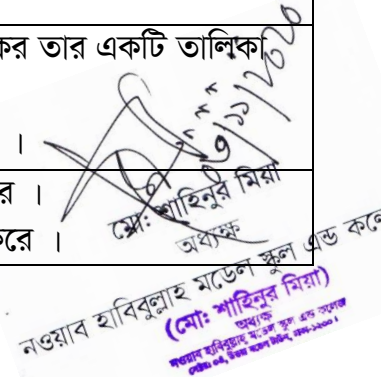 কর তার একটি তালিকা
।
র ।
রে ।
মো: শাহিনুর মিয়া
অধ্যক্ষ
নওয়াব হাবিবুল্লাহ মডেল স্কুল এন্ড কলে
(মো: শাহিনুর মিয়া)
অধ্যক্ষ
নওয়াব হাবিবুল্লাহ মডেল স্কুল এন্ড কলেজ